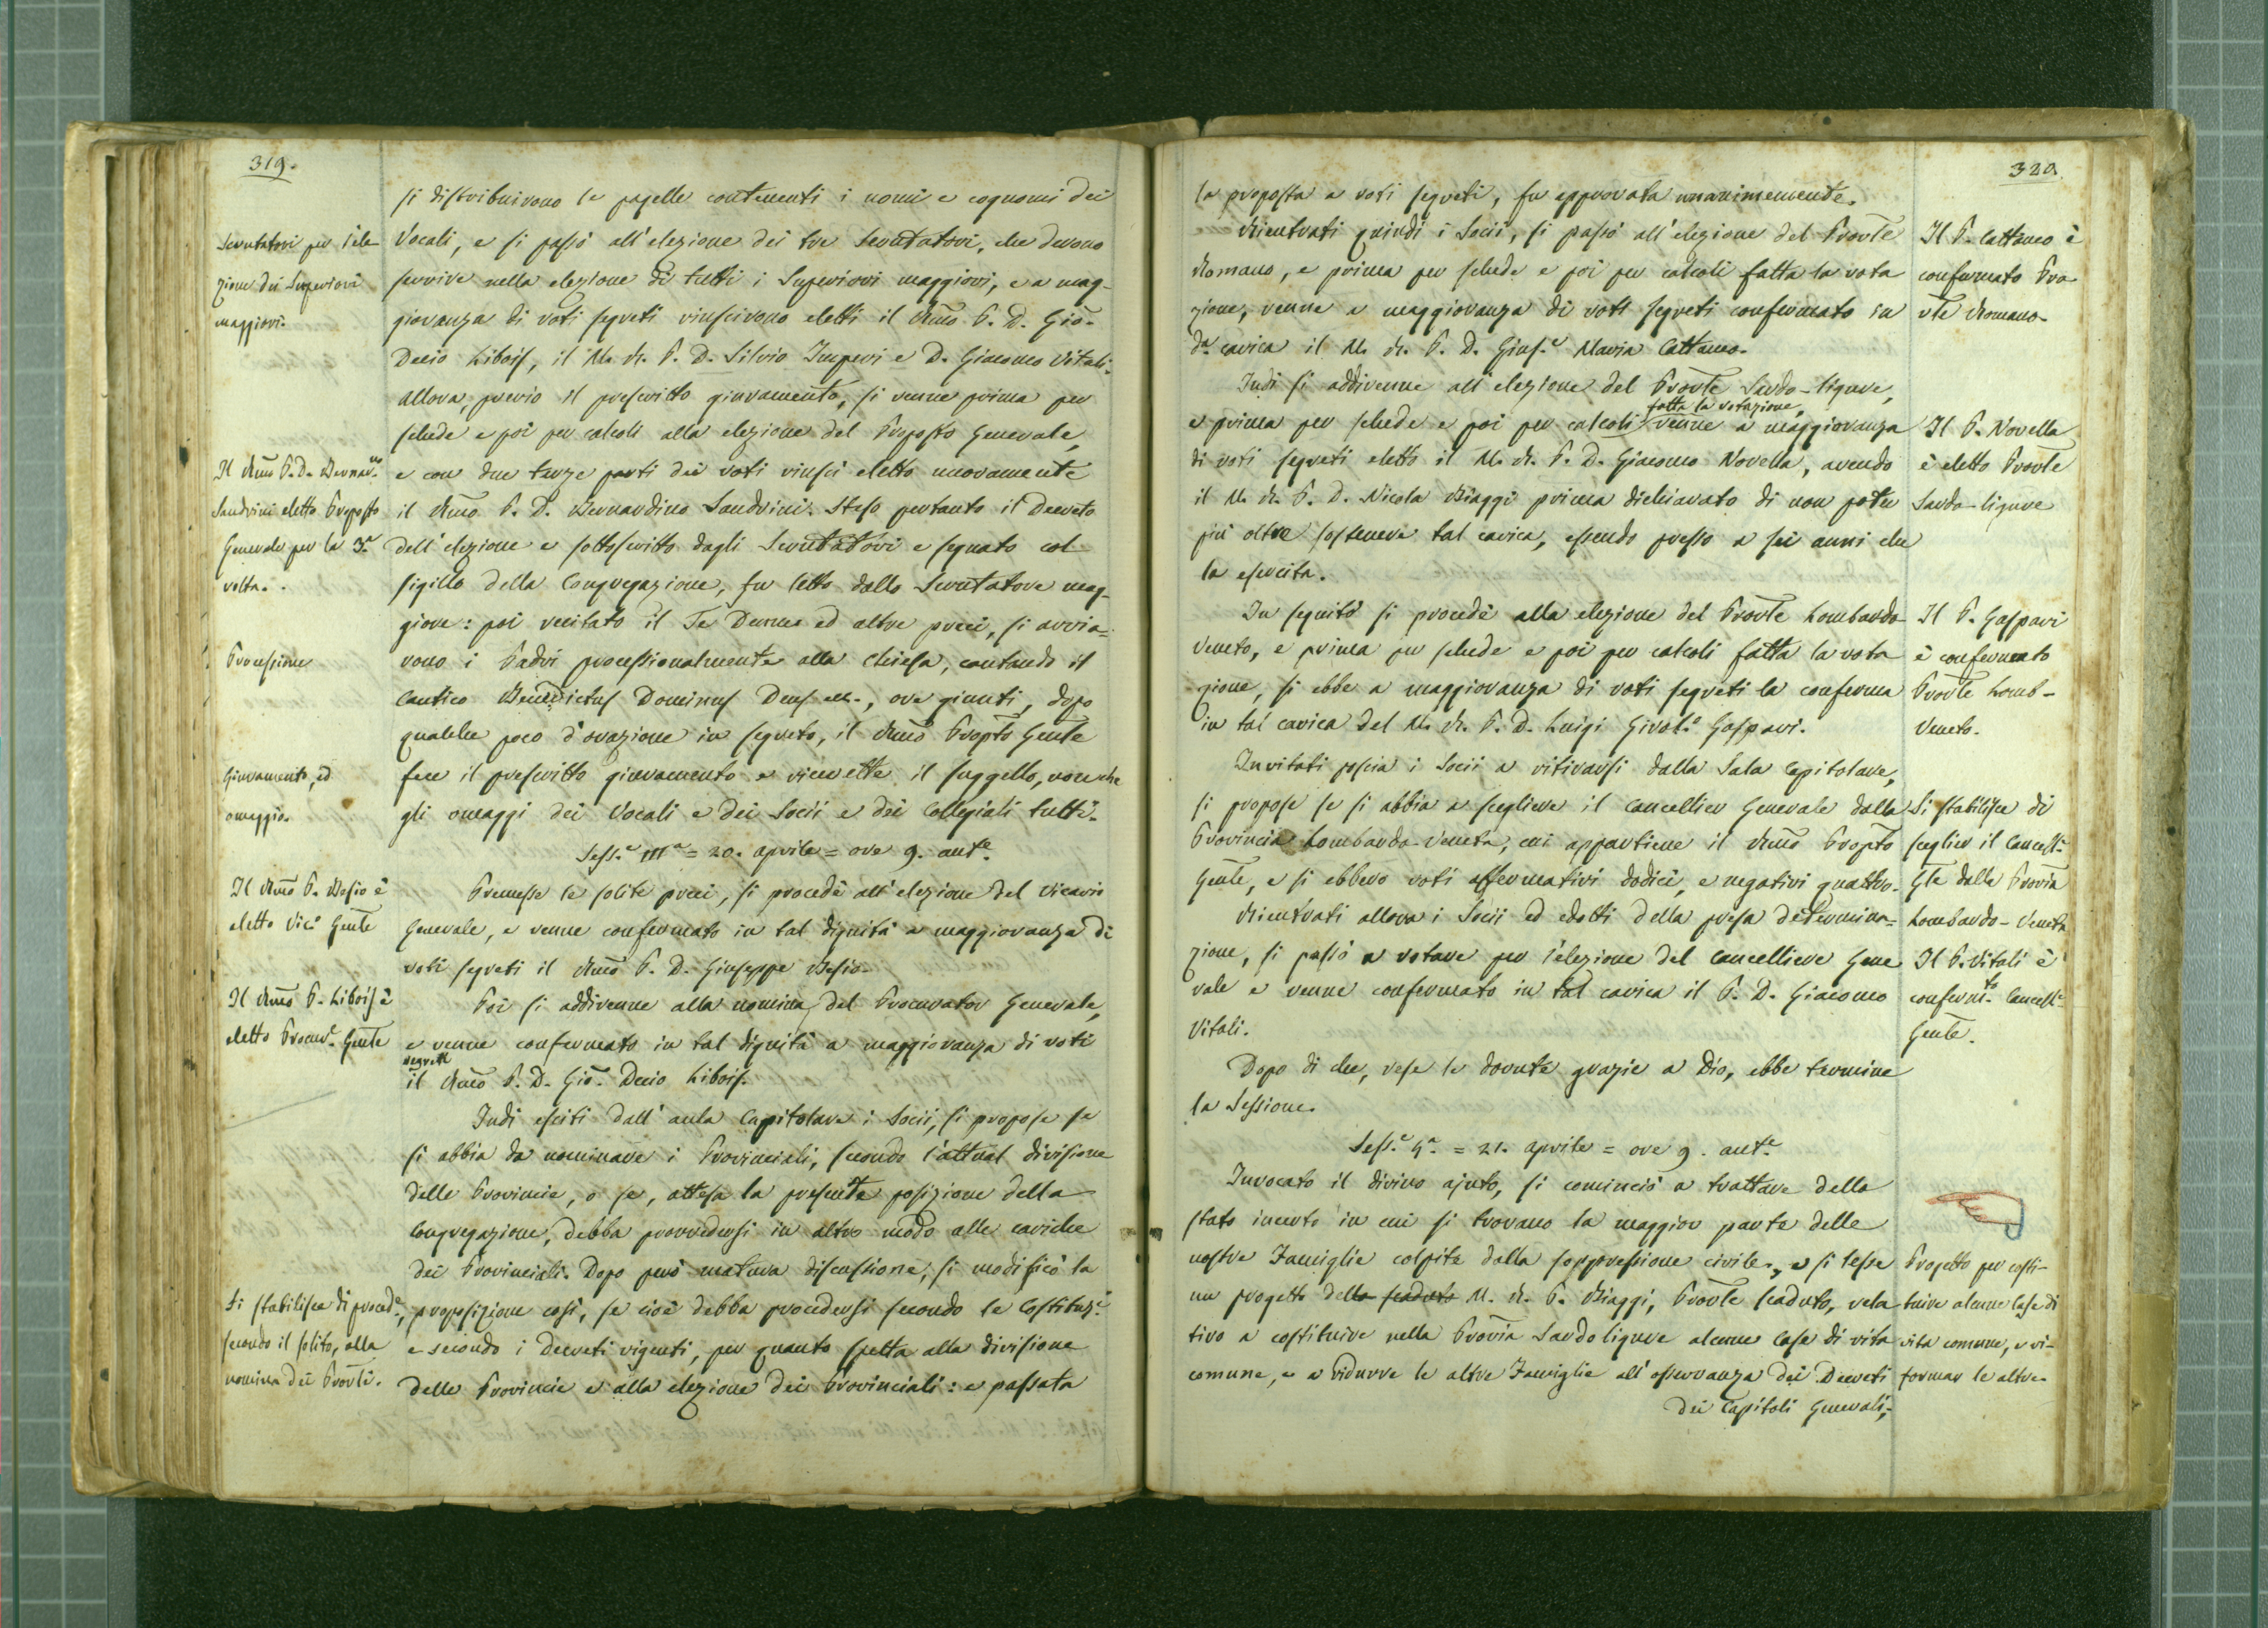 319.
si distribuirono le pagelle contenenti i nomi e cognomi dei
Vocali, e si passò all'elezione dei tre Scrutatori, che devono
servire nella elezione di tutti i Superiori maggiori, e a mag-
gioranza di voti segreti riuscirono eletti il Rmo P. D. Gio.
Decio Libois, il M. R. P. D. Silvio Imperi e D. Giacomo Vitali.
Allora, previo il prescritto giuramento, si venne prima per
schede e poi per calcoli alla elezione del Preposto Generale,
e con due terze parti dei voti riuscì eletto nuovamente
il Rmo P. D. Bernardino Sandrini. Steso pertanto il Decreto
dell'elezione e sottoscritto dagli Scrutatori e segnato col
sigillo della Congregazione, fu letto dallo Scrutatore mag-
giore: poi recitato il Te Deum ed altre preci, si avvia=
rono i Padri processionalmente alla Chiesa, cantando il
Cantico Benedictus Dominus Deus etc., ove giunti, dopo
qualche poco d'orazione in segreto, il Rmo Propto Genle
fece il prescritto giuramento e ricevette il suggello, nonche
gli omaggi dei Vocali e dei Socii e dei Collegiali tutti.
Sess.e IIIa = 20. aprile = ore 9. ant.e
Premesse le solite preci, si procedè all'elezione del Vicario
Generale, e venne confermato in tal dignità a maggioranza di
voti segreti il Rmo P. D. Giuseppe Besio.
Poi si addivenne alla nomina del Procurator Generale,
e venne confermato in tal dignità a maggioranza di voti
segreti
il Rmo P. D. Gio. Decio Libois.
Indi esciti dall'aula Capitolare i Socii, si propose se
si abbia da nominare i Provinciali, secondo l'attual divisione
delle Provincie, o se, attesa la presente posizione della
Congregazione, debba provvedersi in altro modo alle cariche
dei Provinciali. Dopo però matura discussione, si modificò la
proposizione così, se cioè debba procedersi secondo le Costituz.i
e secondo i Decreti vigenti, per quanto spetta alla divisione
delle Provincie e alla elezione dei Provinciali: e passata
Scrutatori per l'ele
zione dei Superiori
maggiori.
Il Rmo P. D. Bernar.no
Sandrini eletto Preposto
Generale per la 3.a
volta.
Processione
Giuramento, ed
omaggio.
Il Rmo P. Besio è
eletto Vic.o Genle
Il Rmo P. Libois è
eletto Procur.e Genle
Si stabilisce di proced.e,
secondo il solito, alla
nomina dei Provli.
320
la proposta a voti segreti, fu approvata unanimemente.
Rientrati quindi i Socii, si passò all'elezione del Provle
Romano, e prima per schede e poi per calcoli fatta la vota
zione, venne a maggioranza di voti segreti confermato in
da carica il M. R. P. D. Gius.e Maria Cattaneo.
Indi si addivenne all'elezione del Provle Sardo-ligure,
fatta la votazione,
e prima per schede e poi per calcoli venne a maggioranza
di voti segreti eletto il M. R. P. D. Giacomo Novella, avendo
il M. R. P. D. Nicola Biaggi prima dichiarato di non poter
più oltre sostenere tal carica, essendo presso a sei anni che
la esercita.
In seguito si procedè alla elezione del Provle Lombardo
Veneto, e prima per schede e poi per calcoli fatta la vota
zione, si ebbe a maggioranza di voti segreti la conferma
in tal carica del M. R. P. D. Luigi Girol.o Gaspari.
Invitati poscia i Socii a ritirarsi dalla Sala Capitolare,
si propose se si abbia a scegliere il Cancellier Generale dalla
Provincia Lombardo-Veneta, cui appartiene il Rmo Propto
Genle, e si ebbero voti affermativi dodici, e negativi quattro.
Rientrati allora i Socii ed edotti della presa determina=
zione, si passò a votare per l'elezione del Cancelliere Gene
rale e venne confermato in tal carica il P. D. Giacomo
Vitali.
Dopo di che, rese le dovute grazie a Dio, ebbe termine
la Sessione.
Sess.e 4.a = 21. aprile = ore 9. ant.e
Invocato il divino ajuto, si cominciò a trattare dello
stato incerto in cui si trovano la maggior parte delle
nostre Famiglie colpite dalla soppressione civile, e si lesse
un progetto dello scaduto M. R. P. Biaggi, Provle scaduto, rela
tivo a costituire nella Provia Sardo ligure alcune Case di vita
comune, e a ridurre le altre Famiglie all'osservanza dei Decreti
dei Capitoli Generali;
Il P. Cattaneo è
confermato Pro
vle Romano.
Il P. Novella
è eletto Provle
Sardo-ligure
Il P. Gaspari
è confermato
Provle Lomb-
Veneto.
Si stabilisce di
scegliere il Cancell.e
Gle dalla Provia
Lombardo-Veneta
Il P. Vitali è
conferm.to Cancell.e
Genle.
Progetto per costi-
tuire alcune Case di
vita comune, e ri-
formar le altre.